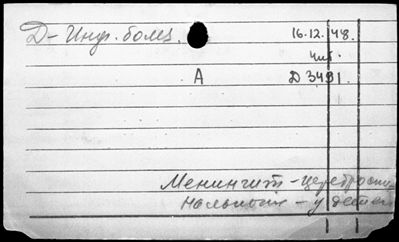 Д- Инф. болез. 16.12.48.
Чит.
А Д 3491.
Менингит - цереброспи
нальный - у детей